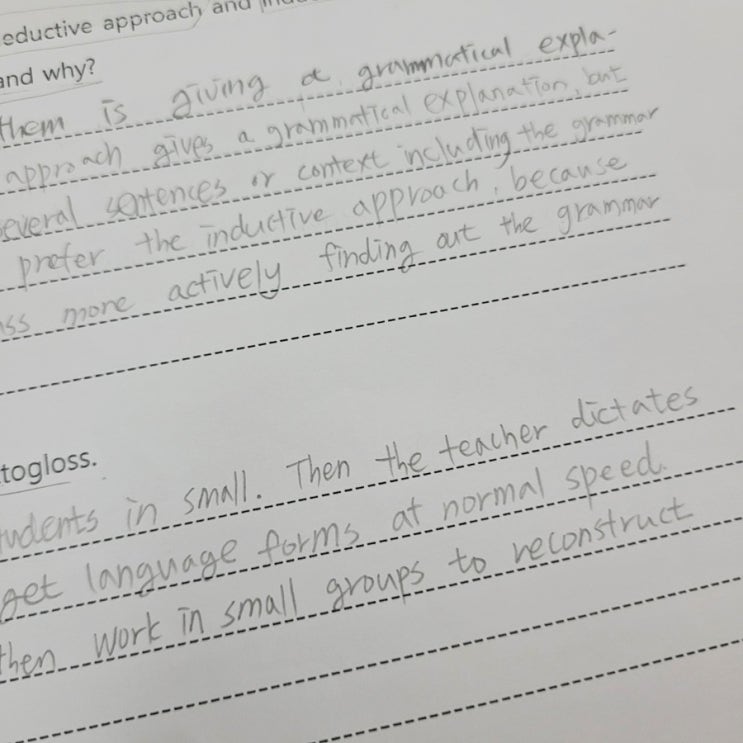 eductive approach and
and why?
them is giving a grammatical expla-
approach gives a grammatical explanation, but
everal sentences or context including the grammar
prefer the inductive approach, because
ss more actively finding out the grammar
togloss.
tudents in small. Then the teacher dictates
get language forms at normal speed.
then work in small groups to reconstruct